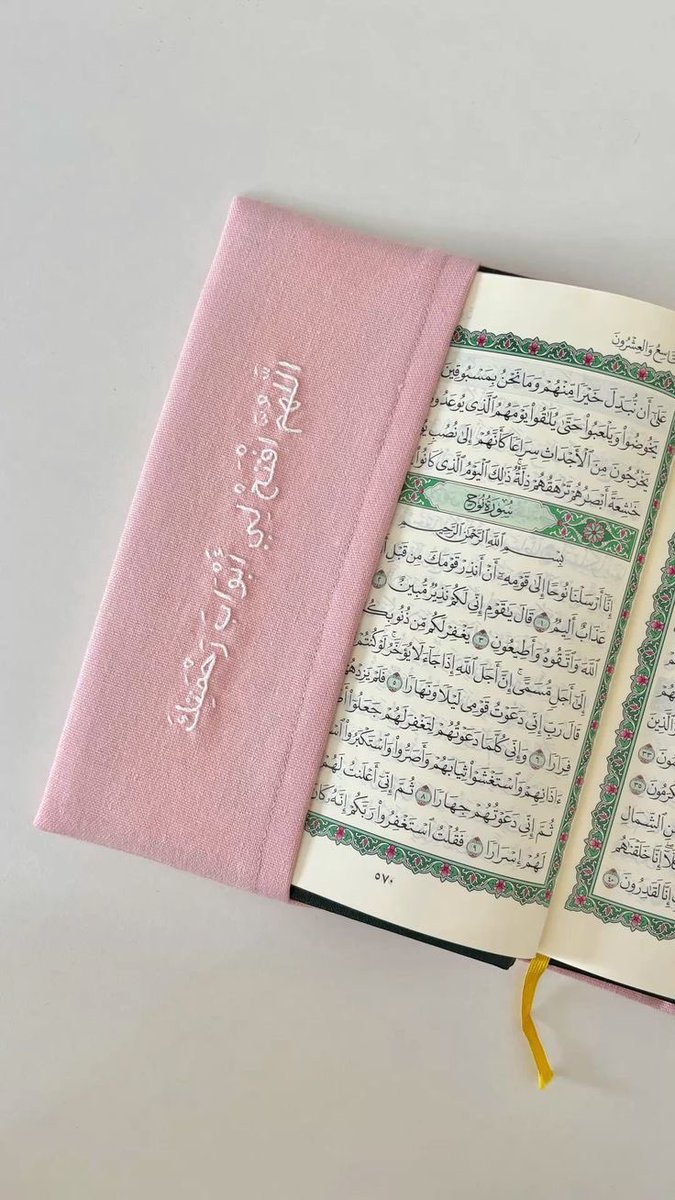 اللَّهُمَّ افْتَحْ لِي أَبْوَابَ رَحْمَتِكَ
وَالعِشْرُونَ
عَلَىٰٓ أَن نُّبَدِّلَ خَيْرًا مِّنْهُمْ وَمَا نَحْنُ بِمَسْبُوقِينَ
يَخُوضُوا۟ وَيَلْعَبُوا۟ حَتَّىٰ يُلَٰقُوا۟ يَوْمَهُمُ ٱلَّذِى
يَخْرُجُونَ مِنَ ٱلْأَجْدَاثِ سِرَاعًا كَأَنَّهُمْ إِلَىٰ نُصُبٍ
خَٰشِعَةً أَبْصَٰرُهُمْ تَرْهَقُهُمْ ذِلَّةٌ ذَٰلِكَ ٱلْيَوْمُ ٱلَّذِى كَانُوا۟
سُورَةُ نُوحٍ
بِسْمِ ٱللَّهِ ٱلرَّحْمَٰنِ ٱلرَّحِيمِ
إِنَّآ أَرْسَلْنَا نُوحًا إِلَىٰ قَوْمِهِۦٓ أَنْ أَنذِرْ قَوْمَكَ مِن قَبْلِ
عَذَابٌ أَلِيمٌ ١ قَالَ يَٰقَوْمِ إِنِّى لَكُمْ نَذِيرٌ مُّبِينٌ ٢
ٱللَّهَ وَٱتَّقُوهُ وَأَطِيعُونِ ٣ يَغْفِرْ لَكُم مِّن ذُنُوبِكُ
إِلَىٰٓ أَجَلٍ مُّسَمًّى إِنَّ أَجَلَ ٱللَّهِ إِذَا جَآءَ لَا يُؤَخَّرُ لَوْ كُنتُمْ
قَالَ رَبِّ إِنِّى دَعَوْتُ قَوْمِى لَيْلًا وَنَهَارًا ٥ فَلَمْ يَزِدْهُمْ
فِرَارًا ٦ وَإِنِّى كُلَّمَا دَعَوْتُهُمْ لِتَغْفِرَ لَهُمْ جَعَلُوٓا۟
ءَاذَانِهِمْ وَٱسْتَغْشَوْا۟ ثِيَابَهُمْ وَأَصَرُّوا۟ وَٱسْتَكْبَرُوا۟
ثُمَّ إِنِّى دَعَوْتُهُمْ جِهَارًا ٨ ثُمَّ إِنِّىٓ أَعْلَنتُ لَهُمْ
لَهُمْ إِسْرَارًا ٩ فَقُلْتُ ٱسْتَغْفِرُوا۟ رَبَّكُمْ إِنَّهُۥ
٥٧٠
ٱلشِّمَالِ
إِنَّا خَلَقْنَٰهُم
إِنَّا لَقَٰدِرُونَ ٤٠